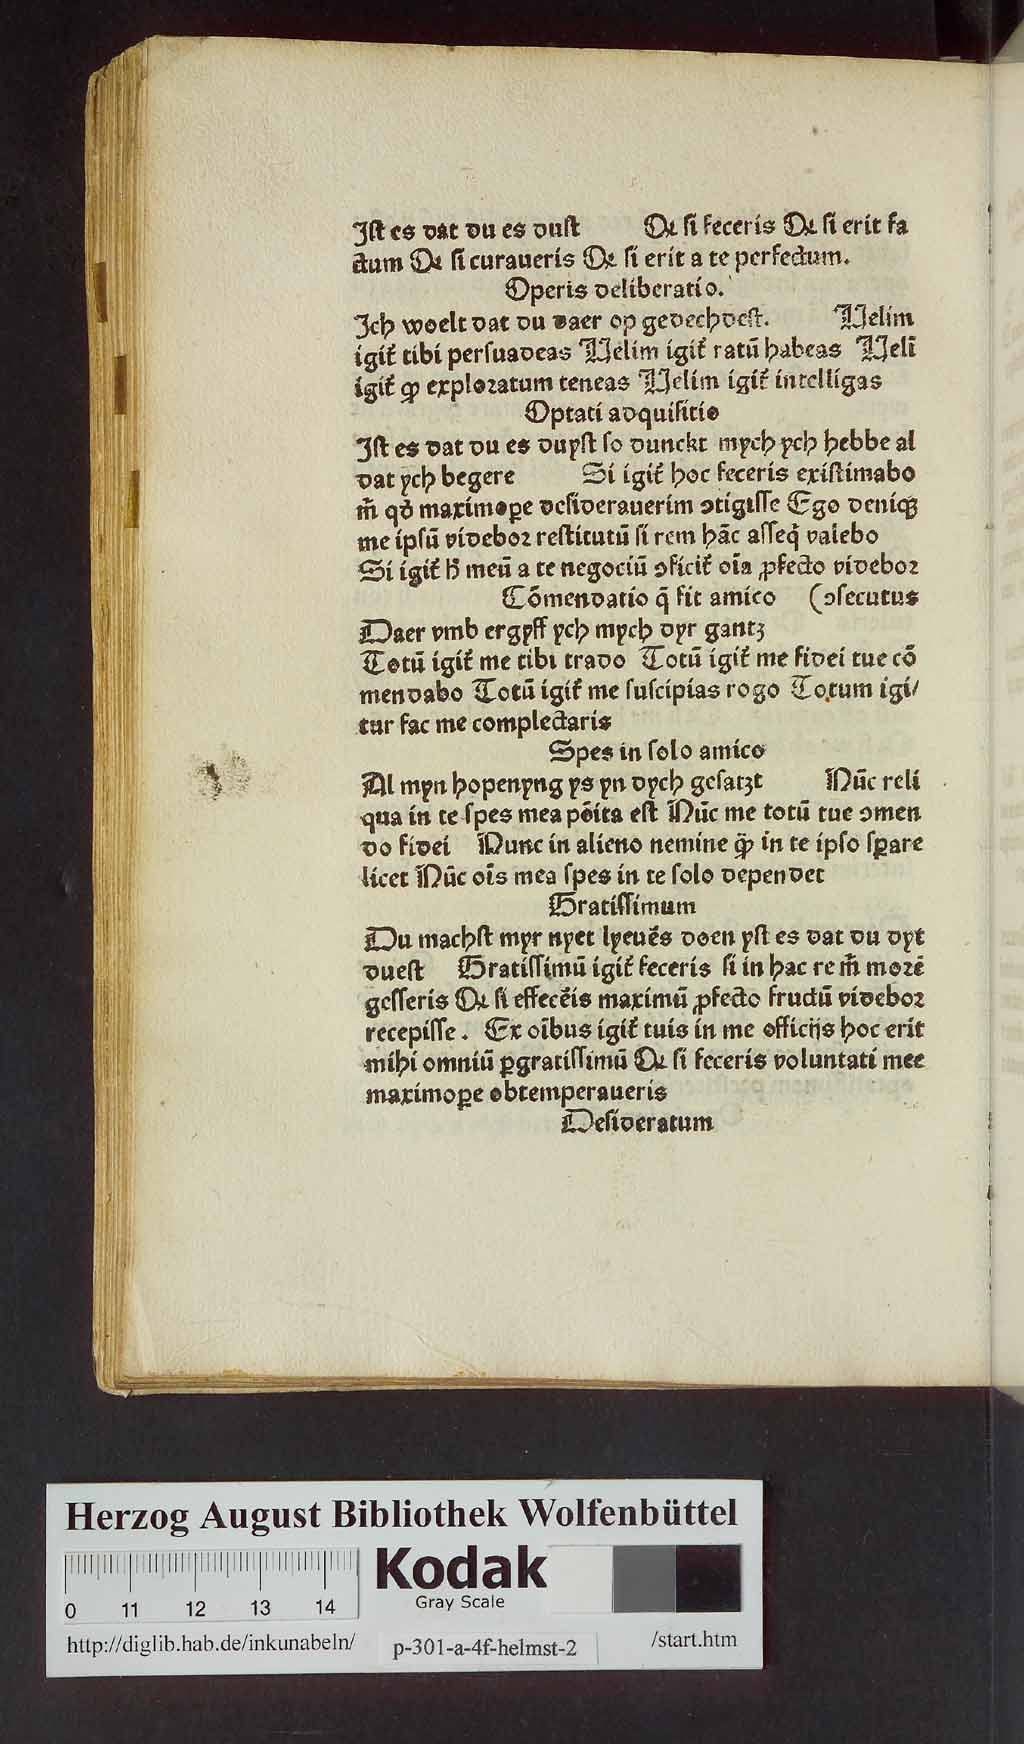 Ist es dat du es dust Qd si feceris Qd si erit fa
ctum Qd si curaueris Qd si erit a te perfectum.
Operis deliberatio.
Ich woelt dat du daer op gedechdest. Velim
igit̃ tibi persuadeas Velim igit̃ ratũ habeas Velĩ
igit̃ ꝓ exploratum teneas Velim igit̃ intelligas
Optati adquisitio
Ist es dat du es duyst so dunckt mych ych hebbe al
dat ych begere Si igit̃ hoc feceris existimabo
m̃ qđ maximoꝑe desiderauerim ↄtigisse Ego deniqꝫ
me ipsũ videbor restitutũ si rem hãc asseq̃ valebo
Si igit̃ h̃ meũ a te negociũ ↄficit̃ oĩa ꝓfecto videbor
Cõmendatio q̃ fit amico (ↄsecutus
Daer vmb ergyff ych mych dyr gantz
Totũ igit̃ me tibi trado Totũ igit̃ me fidei tue cõ
mendabo Totũ igit̃ me suscipias rogo Totum igi/
tur fac me complectaris
Spes in solo amico
Al myn hopenyng ys yn dych gesatzt Nũc reli
qua in te spes mea põita est Nũc me totũ tue ↄmen
do fidei Nunc in alieno nemine q̃ꝫ in te ipso sꝑare
licet Nũc oĩs mea spes in te solo dependet
Gratissimum
Du machst myr nyet lyeuẽs doen yst es dat du dyt
duest Gratissimũ igit̃ feceris si in hac re m̃ morẽ
gesseris Qd si effecẽis maximũ ꝓfecto fructũ videbor
recepisse. Ex oĩbus igit̃ tuis in me officijs hoc erit
mihi omniũ ꝑgratissimũ Qd si feceris voluntati mee
maximoꝑe obtemperaueris
Desideratum
Herzog August Bibliothek Wolfenbüttel
Kodak
Gray Scale
0 11 12 13 14
http://diglib.hab.de/inkunabeln/ p-301-a-4f-helmst-2 /start.htm